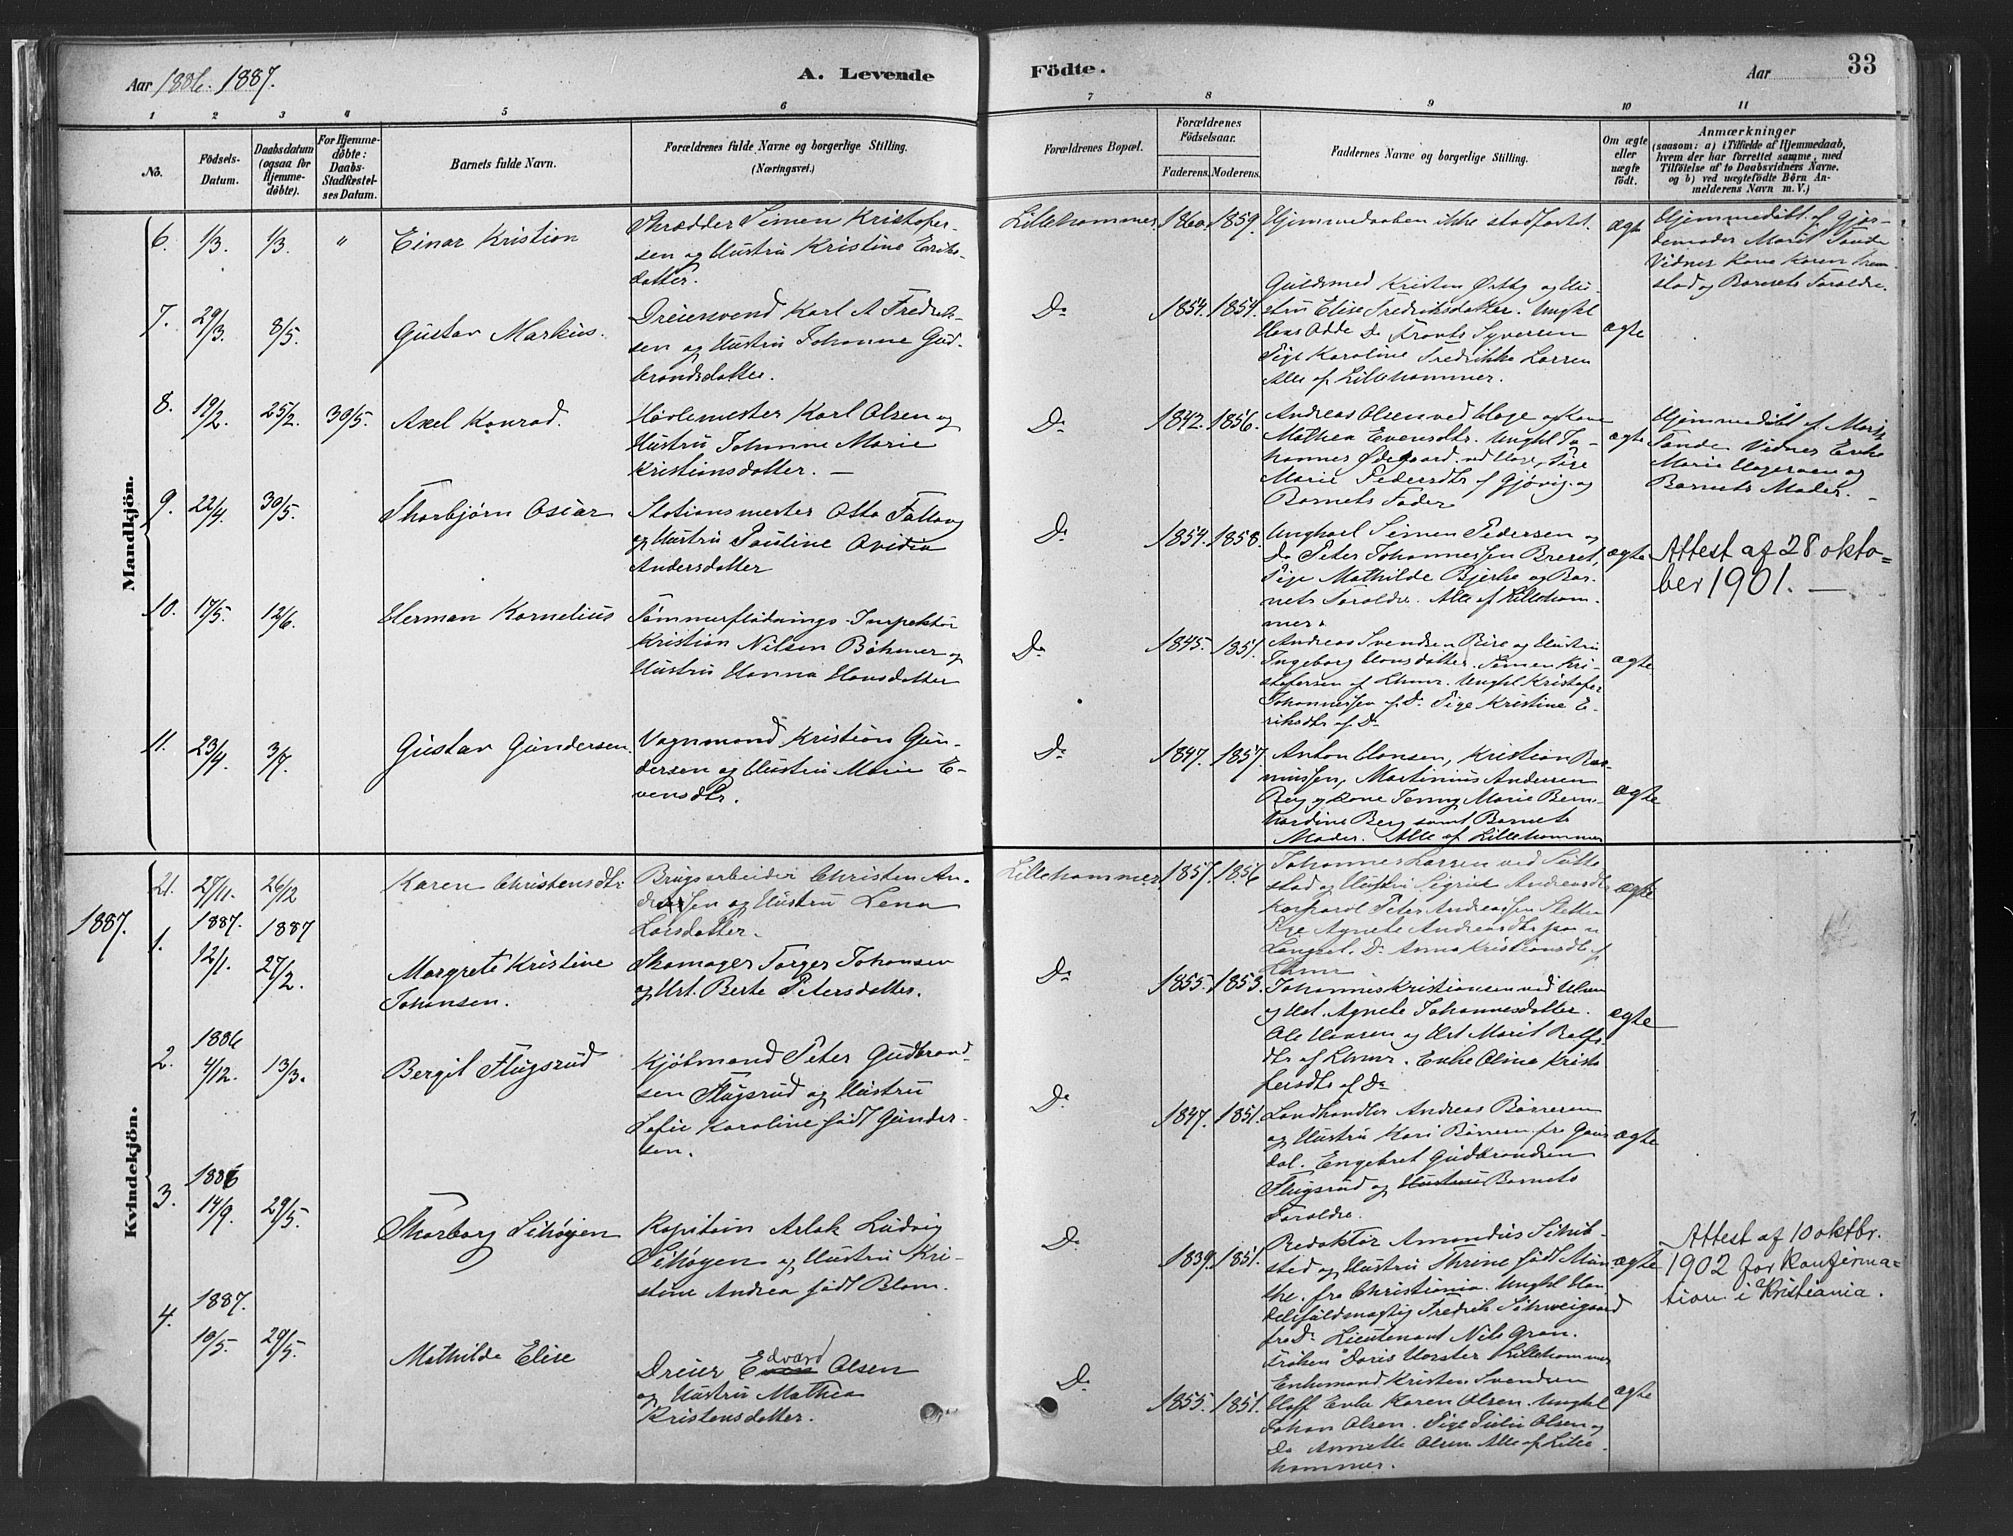 Aar 1886. 1887.
A. Levende
Födte.
Aar
33
1 2 3 4 5 6 7 8 9 10 11
No.
Fødsels-
Datum.
Daabsdatum
(ogsaa for
Hjemme-
døbte).
For Hjemme-
døbte:
Daabs-
Stadfæstel-
ses Datum.
Barnets fulde Navn.
Forældrenes fulde Navne og borgerlige Stilling.
(Næringsvei.)
Forældrenes Bopæl.
Forældrenes
Födselsaar.
Faderens. Moderens.
Faddernes Navne og borgerlige Stilling.
Om ægte
eller
uægte
født.
Anmærkninger
(saasom: a) i Tilfælde af Hjemmedaab,
hvem der har forrettet samme, med
Tilföielse af to Daabsvidners Navne,
og b) ved uægtefödte Börn An-
melderens Navn m. V.)
Mandkjön.
6. 1/3. 1/3. " Einar Kristian
Skrædder Simen Kristofer-
sen og Hustru Kristine Eriks-
datter.
Lillehammer. 1860. 1859. Hjemmedaaben ikke stadfæstet. ægte
Hjemmedöbt af Gjor-
demoder Marit Sande
Vidnes Kone Karen
stad og Barnets Foroldre.
7. 29/3. 8/5. Gustav Markus.
Dreiersvend Karl A Fredrik-
sen og Hustru Johanne Gud-
brandsdatter.
Do 1854. 1854.
Guldsmed Kristen Örtby og Hu-
stru Elise Fredriksdatter. Ungkl
Hans Odde Do Frants Syversen
Pige Karoline Fredrikke Larsen
Alle af Lillehammer.
ægte
8. 19/2. 25/2. 30/5. Axel Konrad.
Høvlemester Karl Olsen og
Hustru Johanne Marie
Kristiansdatter. —
Do 1842. 1856.
Andreas Olsen ved Hage og Kone
Mathea Evensdtr. Ungkl Jo-
hannes Ødegaard ved Hage, Pige
Marie Pedersdtr af Gjøvig og
Barnets Fader
ægte
Hjemmedöbt af Marit
Sande Vidnes Enke
Marie Hageraen og
Barnets Moder. —
9. 22/4. 30/5. Thorbjørn Oscar
Stationsmester Otto
og Hustru Pauline Ovidia
Andersdatter
Do 1854. 1858.
Ungkarl Simen Pedersen og
Do Peter Johannessen Breset,
Pige Mathilde Bjerke og Bar-
nets Foroldre. Alle af Lilleham-
mer.
ægte
Attest af 28 okto-
ber 1901. —
10. 17/5. 12/6. Herman Kornelius
Tømmerflødnings-Inspektör
Kristian Nilsen Böhmer og
Hustru Hanna Hansdatter
Do 1845. 1851.
Andreas Svendsen Bire og Hustru
Ingeborg Hansdatter. Simen Kri-
stofersen af Lhmr. Ungkl Kristofer
Johannessen af Do Pige Kristine E-
riksdtr af Do
ægte
11. 23/4. 3/7. Gustav Gundersen.
Vognmand Kristian Gun-
dersen og Hustru Marie E-
vensdtr.
Do 1847. 1857.
Anton Hansen, Kristian Ras-
mussen, Martinius Andersen
Berg og Kone Jenny Marie Bern-
hardine Berg samt Barnets
Moder. Alle af Lillehammer
ægte
Kvindekjön.
21. 27/11. 26/12 Karen Christensdtr
Brugsarbeider Christen An-
dreassen og Hustru Lena
Larsdatter.
Lillehammer 1857. 1856
Johannes Larsen ved Sutte-
stad og Hustru Sigrid Andreasdtr
Korporal Peter Andreassen
Pige Agnete Andreasdtr
Do Anna Kristiansdtr af
Lhmr
ægte
1887. 1887. 1887
1. 12/1. 27/2. Margrete Kristine
Johansen.
Skomager Torger Johansen
og Hst. Berte Petersdatter.
Do 1855. 1853.
Johannes Kristiansen ved
og Hst. Agnete Johannesdatter.
Ole Hansen og Hst Marit
dtr af Lhmr. Enke Olina Kristo
fersdtr af Do
ægte
2. 1886
4/12. 13/3. Bergit Flugsrud
Kjötmand Peter Gudbrand-
sen Flugsrud og Hustru
Sofie Karoline født Gunder-
sen.
Do 1847. 1851.
Landhandler Andreas Börresen
og Hustru Kari Börresen fra Gaus
dal. Engebret Gudbrandsen
Flugsrud og Hustru Barnets
Foroldre.
ægte
3. 1886
14/9. 29/5. Thorborg Sihøgen
Kapitain Arlak Ludvig
Sihøgen og Hustru Kri-
stine Andrea født Blom.
Do 1839. 1851.
Redaktör Amandus Schib-
sted og Hustru Thrine født Mun
the. fra Christiania. Ungkl Han
delsfuldmægtig Fredrik Schweigaard
fra Do Lieutenant Nils Gran.
Frøken Doris Horster Lillehammer
ægte
Attest af 10 oktbr.
1902 for konfirma-
tion i Kristiania.
4. 1887.
10/5. 29/5. Mathilde Elise
Dreier Edvard Olsen
og Hustru Mathea
Kristensdatter.
Do 1855. 1851.
Enkemand Kristen Svendsen
Hoff Enke Karen Olsen. Ungkl
Johan Olsen. Pige Julie Olsen og
Do Annette Olsen Alle af Lille-
hammer.
ægte